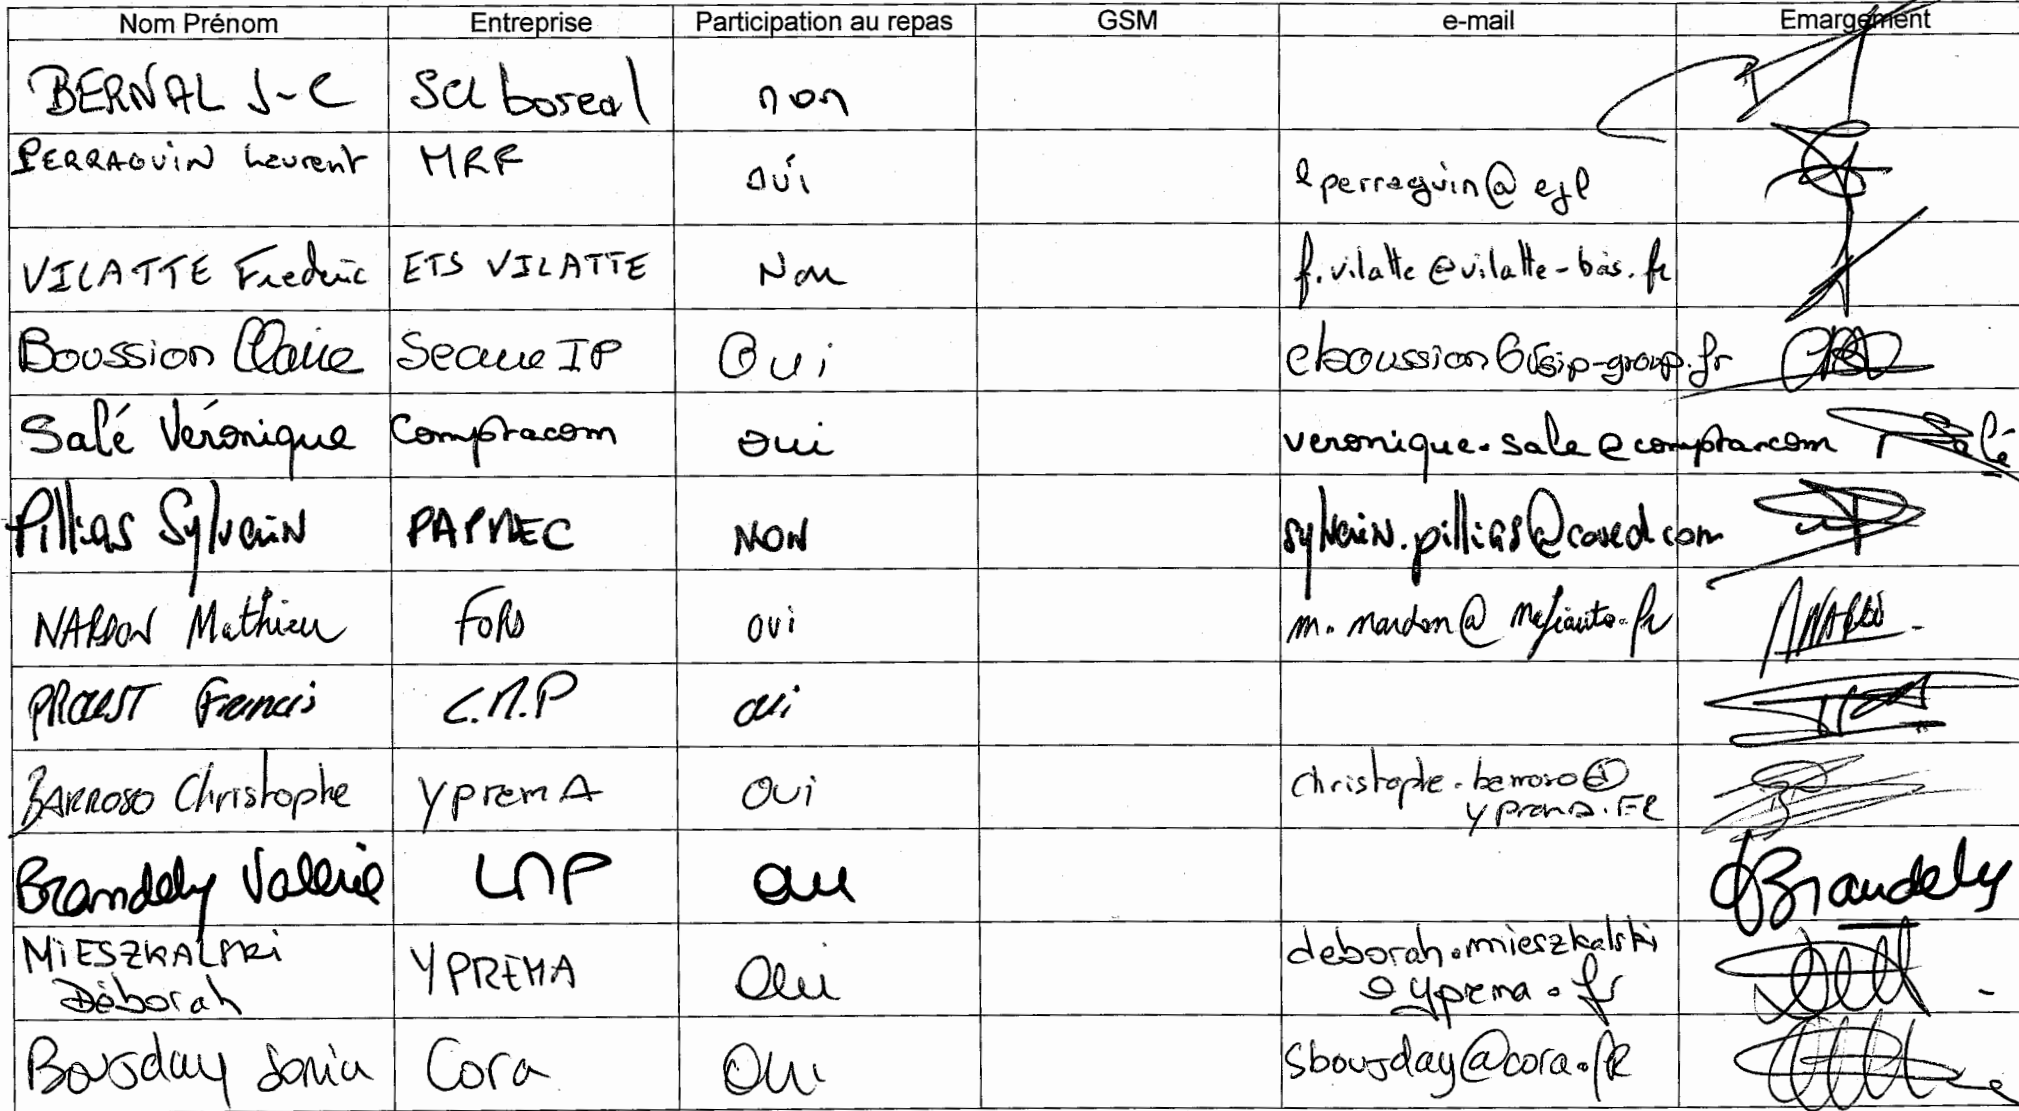 Nom Prénom Entreprise Participation au repas GSM e-mail Emargement
BERNAL J-C Sci boreal non
PERRAGUIN Laurent MRF oui lperraguin@ejl
VILATTE Frederic ETS VILATTE Non f.vilatte@vilatte-bois.fr
Boussion Claire Secure IP Oui cboussion@sip-group.fr
Salé Véronique Comptacom oui veronique.sale@comptacom Salé
Pillias Sylvain PAPREC NON sylvain.pillias@coved.com
NARDON Mathieu oui m.nardon@
PROUST Francis oui
BARROSO Christophe YpremA Oui christophe.barroso@
yprema.FR
Brandely Valerie oui Brandely
MIESZKALSKI deborah.mieszkalski
Déborah YPREMA Oui @yprema.fr
Bousday Sonia Cora Oui sbousday@cora.fr